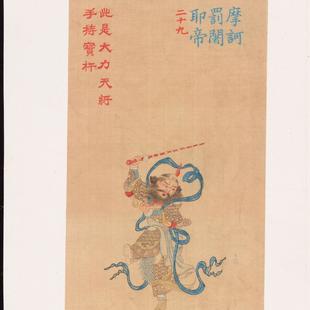 摩訶
罰闍
耶帝
二十九
此是大力天將
手持寶杵